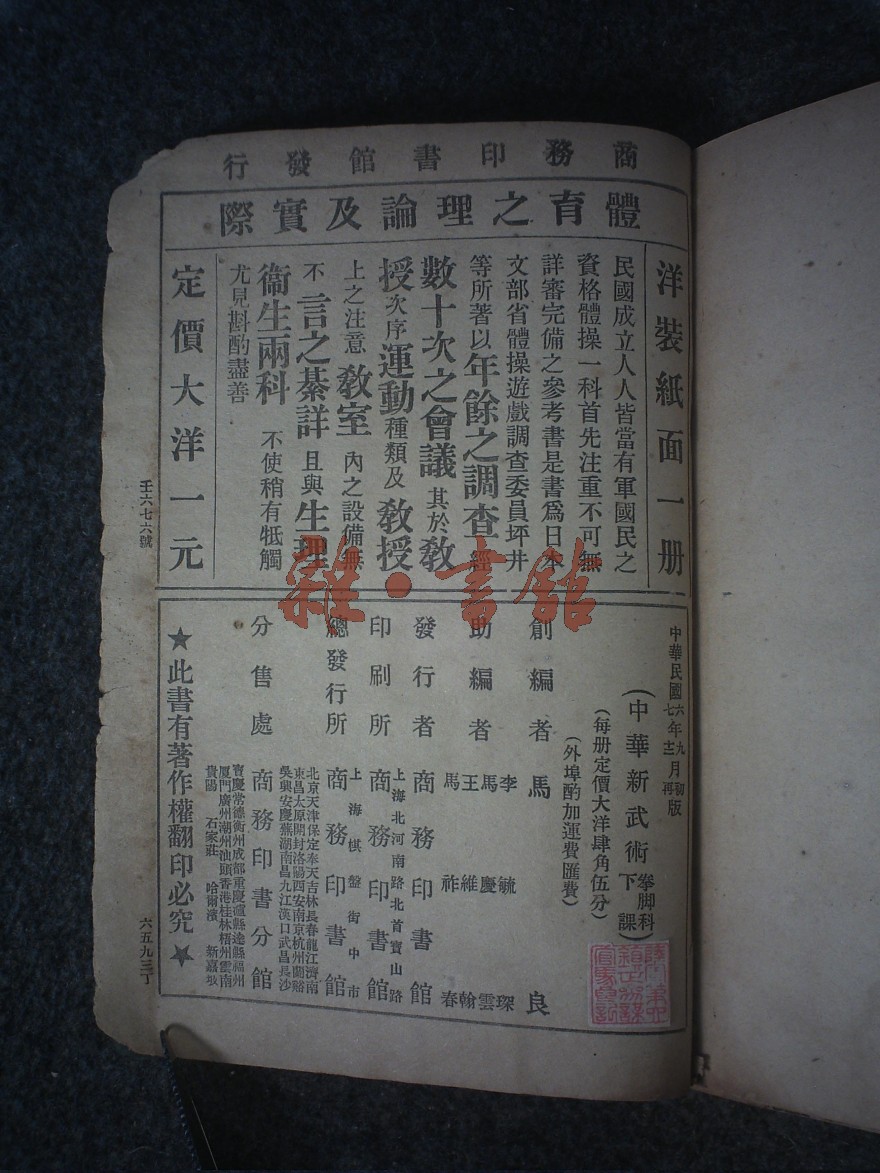 商務印書館發行
體育之理論及實際
洋裝紙面一册
民國成立人人皆當有軍國民之
資格體操一科首先注重不可無
詳審完備之參考書是書爲日本
文部省體操遊戲調查委員坪井
等所著以年餘之調查經
數十次之會議其於教
授次序運動種類及教授
上之注意教室內之設備無
不言之綦詳且與生理
衞生兩科不使稍有牴觸
尤見斟酌盡善
定價大洋一元
壬六七六號
中華民國六年九月初版
七年十二月再版
(中華新武術拳脚科下課)
(每册定價大洋肆角伍分)
(外埠酌加運費匯費)
創編者 馬良
助編者 李毓琛
馬慶雲
王維翰
馬祚春
發行者 商務印書館
上海北河南路北首寶山路
印刷所 商務印書館
上海棋盤街中市
總發行所 商務印書館
北京天津保定奉天吉林長春龍江濟南
東昌太原開封洛陽西安南京杭州蘭谿
吳興安慶蕪湖南昌九江漢口武昌長沙
分售處 商務印書分館
寶慶常德衡州成都重慶瀘縣達縣福州
厦門廣州潮州汕頭香港桂林梧州雲南
貴陽 石家莊 哈爾濱 新嘉坡
★此書有著作權翻印必究★
六五九三丁
雜·書館